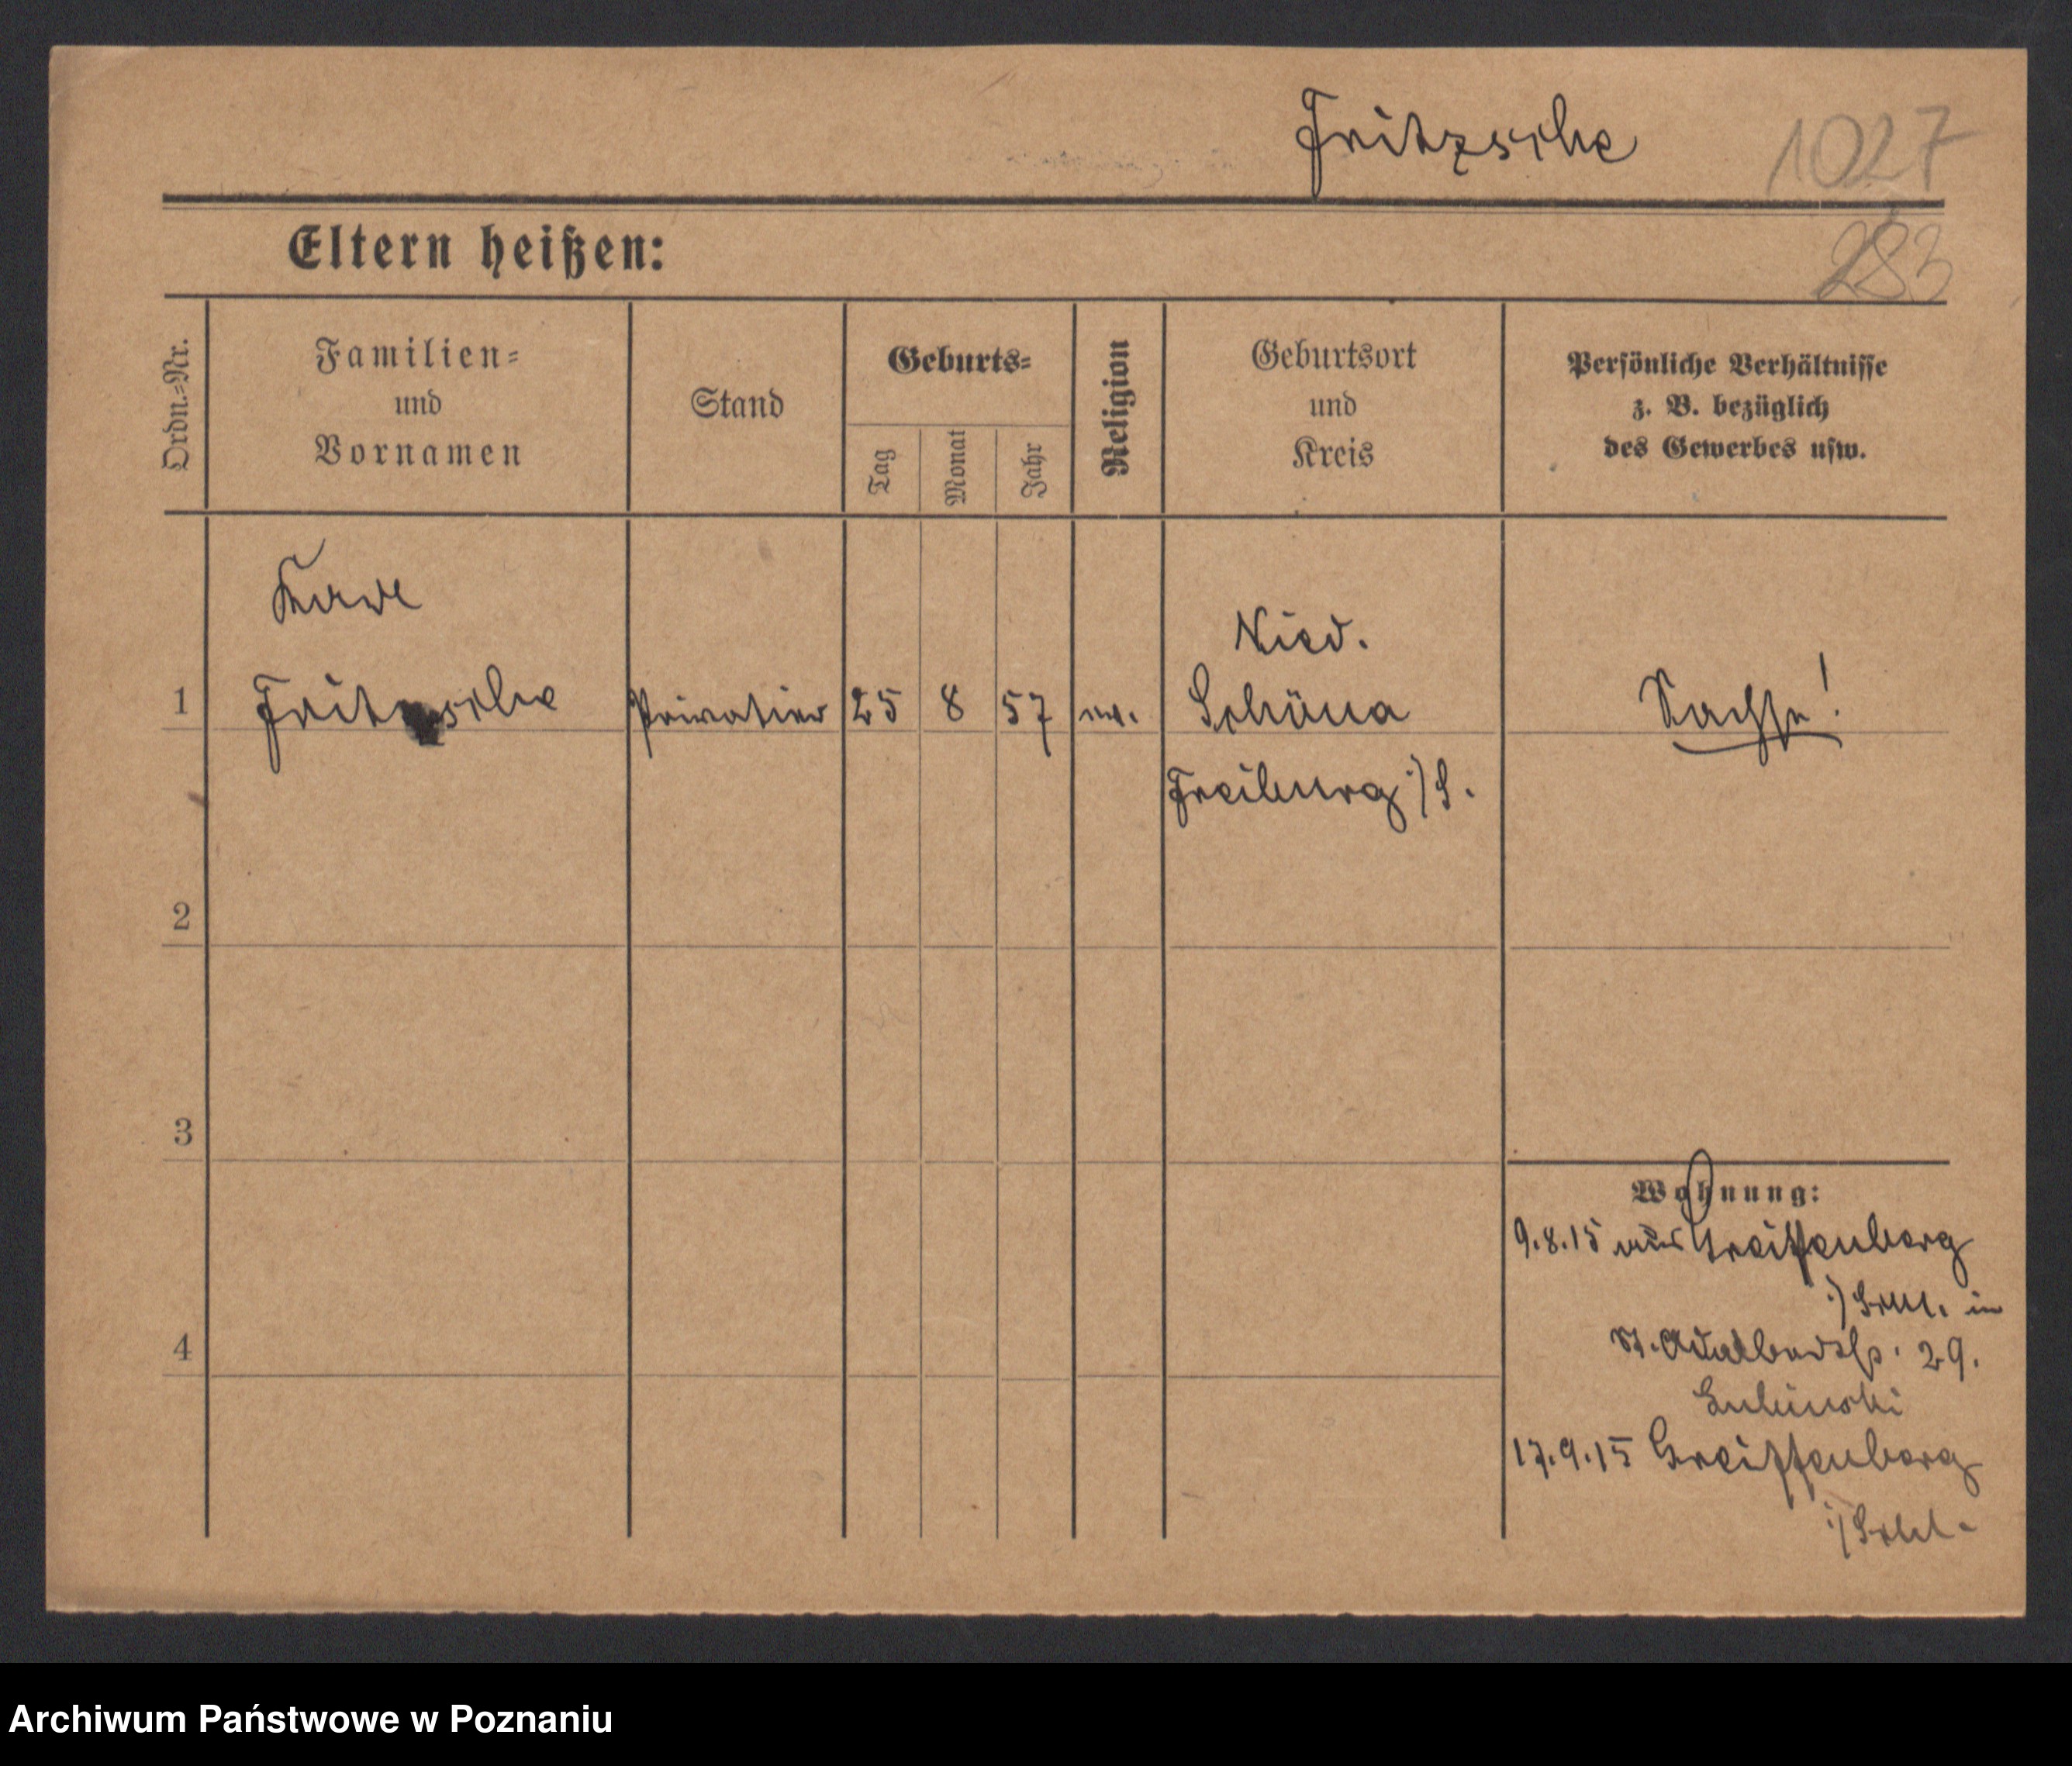 Fritzsche
1027
283
Eltern heißen:
Ordn.=Nr.
Familien=
und
Vornamen
Stand
Geburts=
Tag
Monat
Jahr
Religion
Geburtsort
und
Kreis
Persönliche Verhältnisse
z. B. bezüglich
des Gewerbes usw.
1
Fritzsche
Privatier
25
8
57
ev.
Nied.
Schöna
Freiburg i/S.
Sachse!
2
3
4
Wohnung:
9.8.15 aus Greiffenberg
i/Schl. in
St. Adalbertstr. 29.
17.9.15 Greiffenberg
i/Schl.
Archiwum Państwowe w Poznaniu